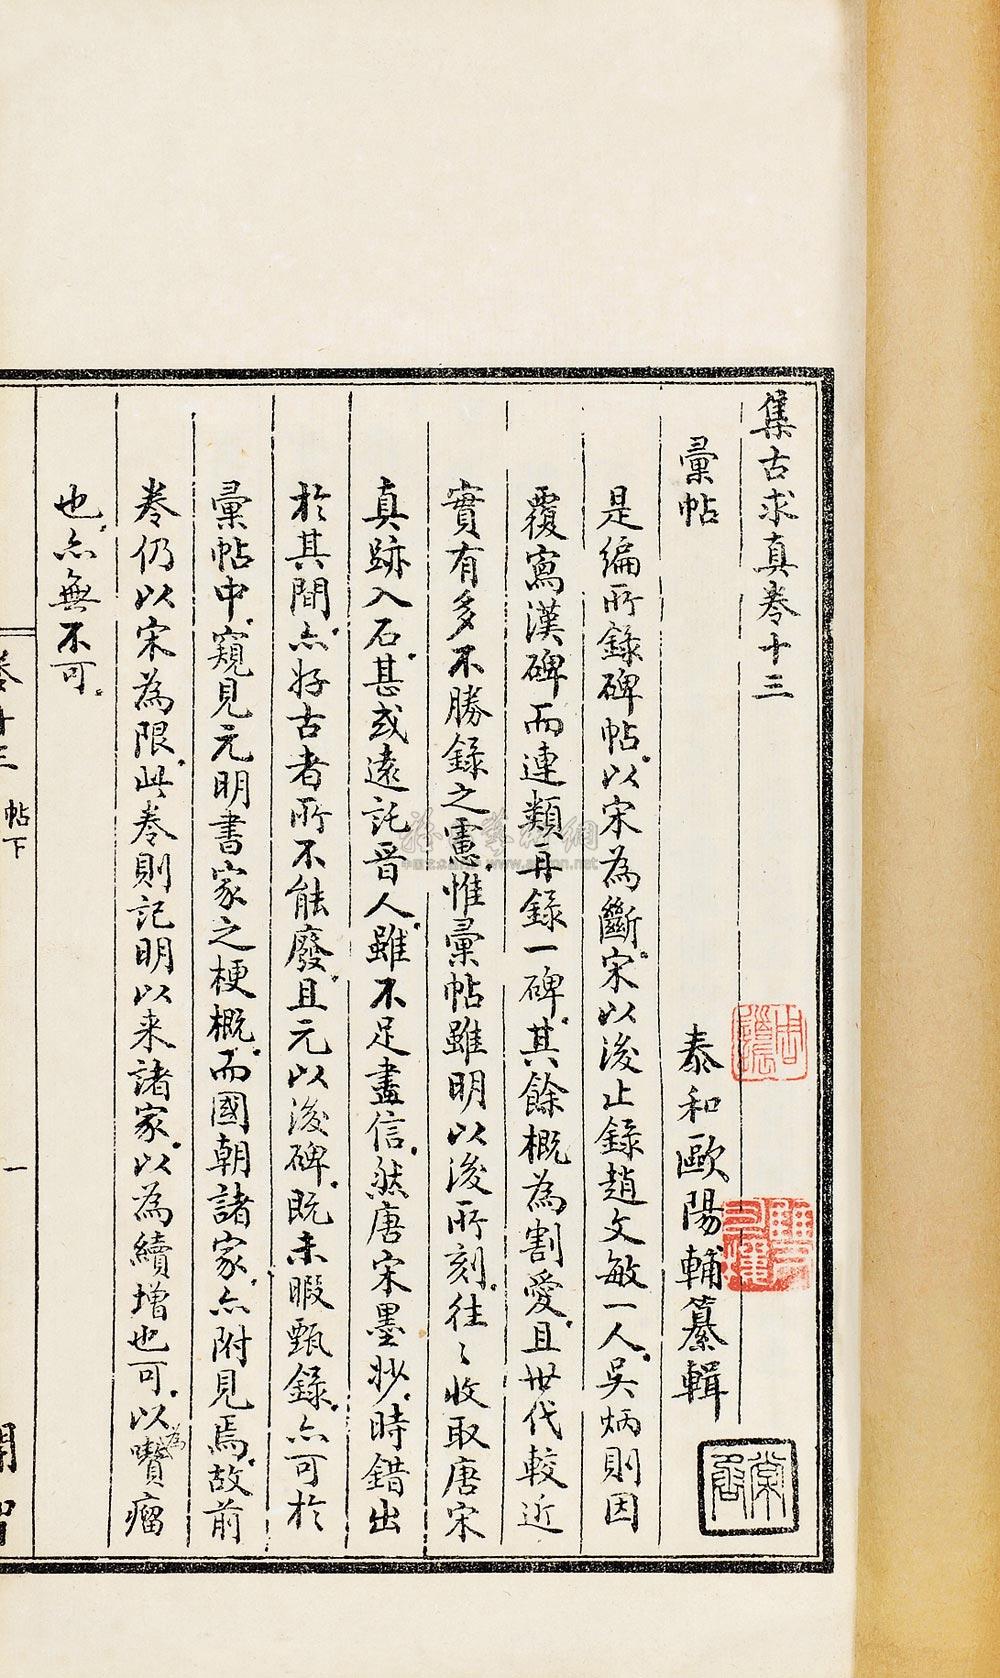 集古求真卷十三
彙帖
泰和歐陽輔纂輯
是編所錄碑帖。以宋為斷。宋以後止錄趙文敏一人。吳炳則因
覆寫漢碑而連類再錄一碑。其餘概為割愛。且世代較近
實有多不勝錄之慮。惟彙帖雖明以後所刻。往〻收取唐宋
真跡入石。甚或遠託晉人。雖不足盡信。然唐宋墨妙。時錯出
於其間。亦好古者所不能廢。且元以後碑。既未暇甄錄。亦可於
彙帖中。窺見元明書家之梗概。而國朝諸家。亦附見焉。故前
卷仍以宋為限。此卷則記明以來諸家。以為續增也可。以為嚽瘤
也。亦無不可。
卷十三
帖下
一
開智
www.artron.net